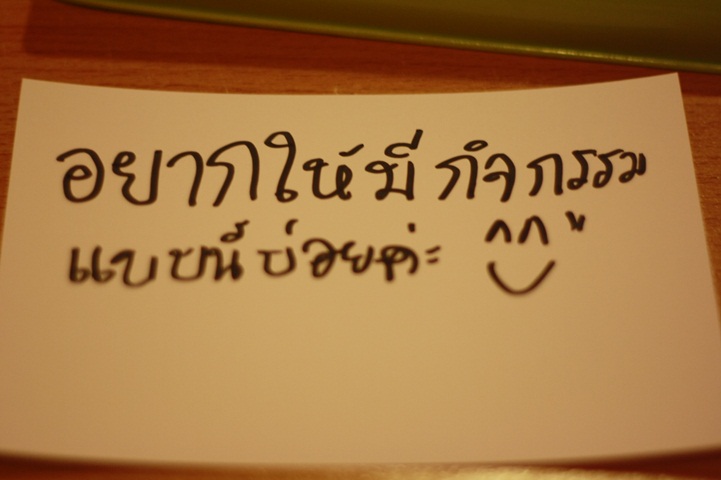 อยากให้มี กิจกรรม
แบบนี้ บ่อยค่ะ ^^"